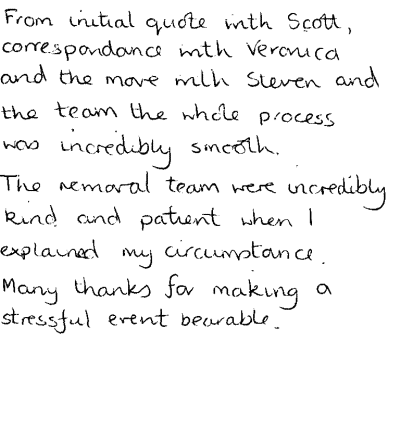 From initial quote with Scott,
correspondance with Veronica
and the move with Steven and
the team the whole process
was incredibly smooth.
The removal team were incredibly
kind and patient when I
explained my circumstance.
Many thanks for making a
stressful event bearable.